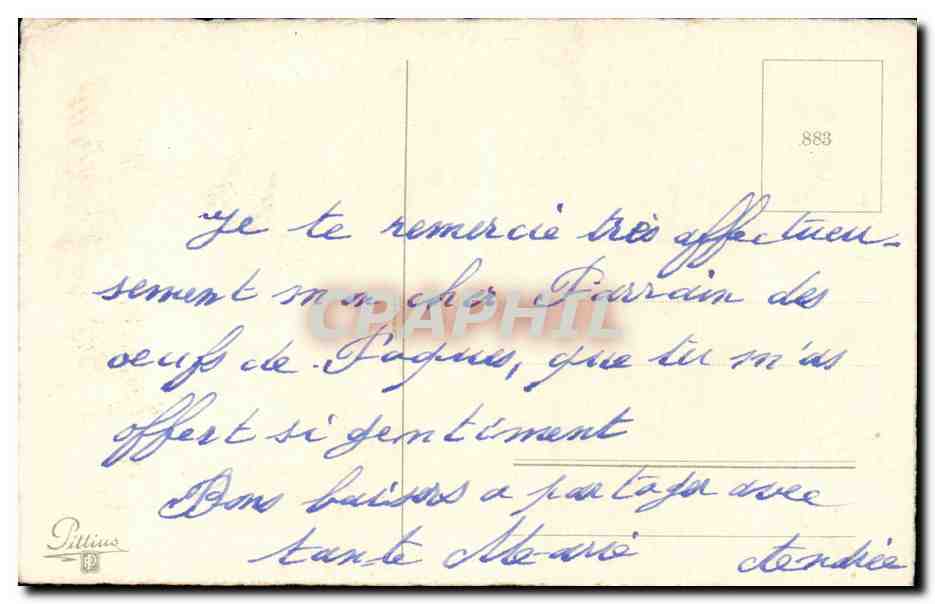 883
Je te remercie très affectueu-
sement mon cher Parrain des
oeufs de Paques, que tu m'as
offert si gentiment
Bons baisers a partager avec
tante Marie Andrée
CPAPHIL
Pillius